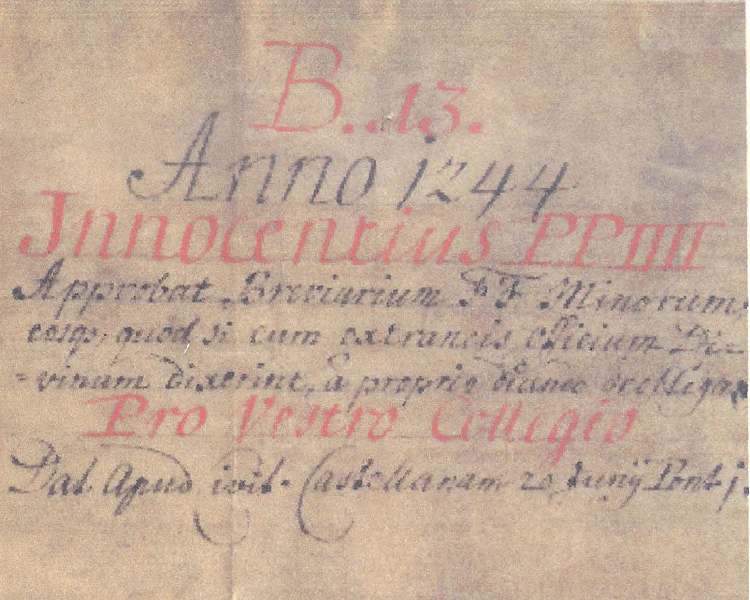 B. 13.
Anno 1244
Innocentius PP IIII
Approbat Breviarium F F Minorum,
eosq, quod si cum extraneis officium Di=
=vinum dixerint, à proprio
Pro Vestro Collegio
Dat Apud Civit. Castellanam 20 Junij Pont j.